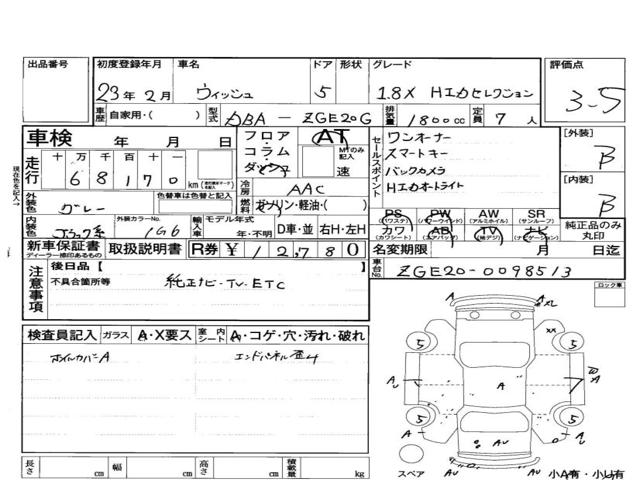 出品番号 初度登録年月 車名 ドア 形状 グレード 評価点
23年2月 ウィッシュ 5 1.8X HIDセレクション 3-5
車歴 自家用・( ) 型式 DBA-ZGE20G 排気量 1800cc 定員 7人
車検 年 月 日 フロア・コラム・ダッシュ AT MTのみ記入 速
走行 十万千百十一 68170 km
セールスポイント
ワンオーナー
スマートキー
バックカメラ
HIDオートライト
[外装] B
[内装] B
現在色を記入→
外装色 グレー 色替車は色替と記入
冷房 AAC
燃料 ガソリン・軽油・( )
内装色 ブラック系 外装カラーNo. 1G6 輸入車 モデル年式 年・不明 D車・並 右H・左H
PS (パワステ) PW (パワーウインド) AW (アルミホイル) SR (サンルーフ)
カワ (カワシート) AB (エアバッグ) TV (地デジ) ナビ (ナビゲーション)
純正品のみ丸印
新車保証書 ディーラー捺印あるもの 取扱説明書 R券 ¥12,780
名変期限 月 日迄
車台No. ZGE20-0098513
注意事項 後日品【 】
不具合箇所等 純正ナビ・TV・ETC
ロック車
検査員記入 ガラス A・X要ス 室内シート A・コゲ・穴・汚れ・破れ
ホイルカバーA エンドパネル歪み
A XL
XX
5 5
AU A A
5 5
A AU
AU AU
スペア 小A有・小U有
長さ cm 幅 cm 高さ cm 積載量 kg